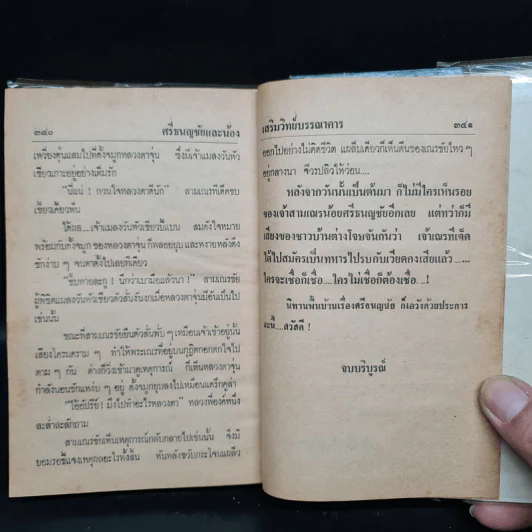 ๓๔๐ ศรีธนญชัยและน้อง
เหวี่ยงตุ้นแสมไปที่ดั้งจมูกหลวงตาจุ่น ซึ่งมีเจ้าแมลงวันหัว
เขียวเกาะอยู่อย่างเต็มรัก
"นี่แน่ ! กวนใจหลวงตาดีนัก" สามเณรที่เด็ดขบ
เขี้ยวเคี้ยวฟัน
ได้ผล....เจ้าแมลงวันหัวเขียวบี้แบน สมดังใจหมาย
พร้อมกับดั้งจมูก ของหลวงตาจุ่น ก็พลอยยุบ และหงายหลังดิ้ง
ชักง่าง ๆ จนตาตั้งไปเลยทีเดียว
"ชิบหายละกู ! นึกว่าเบามือแล้วนา !" สามเณรชัย
ผู้พิชิตแมลงวันหัวเขียวตัวสั่นงันงกเมื่อหลวงตาจุ่นมีอันเป็นไป
เช่นนั้น
ขณะที่สามเณรชัยยืนตัวสั่นพั่บ ๆ เหมือนเจ้าเข้าอยู่นั้น
เสียงโครมคราม ๆ ทำให้พระเณรที่อยู่บนกุฏิตกอกตกใจไป
ตาม ๆ กัน ต่างก็วิ่งเข้ามาดูเหตุการณ์ ก็เห็นหลวงตาจุ่น
กำลังนอนชักแหง่บ ๆ อยู่ ดั้งจมูกยุบลงไปเหมือนแคร์กคูล่า
"ไอ้อัปรีย์ ! มึงไปทำอะไรหลวงตา" หลวงพี่องค์หนึ่ง
ละล่ำละลักถาม
สามเณรชัยเห็นเหตุการณ์กลับกลายไปเช่นนั้น จึงมิ
ยอมรอชี้แจงเหตุผลอะไรทั้งสิ้น หันหลังขวับกระโจนแผล็ว
เสริมวิทย์บรรณาคาร ๓๔๑
ออกไปอย่างไม่คิดชีวิต แผล็บเดียวก็เห็นตีนของเณรชัยไหว ๆ
อยู่กลางนา จีวรปลิวโห้ว่อน....
หลังจากวันนั้นเป็นต้นมา ก็ไม่มีใครเห็นรอย
ของเจ้าสามเณรน้อยศรีธนญชัยอีกเลย แต่ทว่าก็มี
เสียงของชาวบ้านต่างโจษจันกันว่า เจ้าเณรที่เด็ด
ได้ไปสมัครเป็นทหารไปรบกับเวียดกงเสียแล้ว....
ใครจะเชื่อก็เชื่อ....ใครไม่เชื่อก็ต้องเชื่อ....!
นิทานพื้นบ้านเรื่องศรีธนญชัย ก็เอวังด้วยประการ
ฉะนี้....สวัสดี !
จบบริบูรณ์